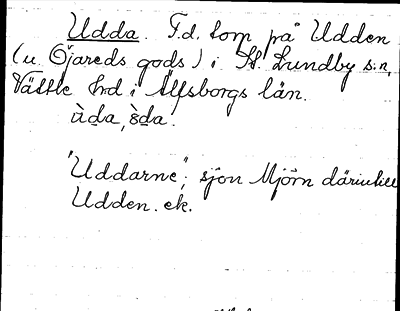 Udda. T.d. torp på Udden
(u. Öjareds gods) i St. Lundby s:n,
Vättle hrd i Älfsborgs län.
ùda, òda.
"Uddarne"; sjön Mjörn därintill
Udden. ek.